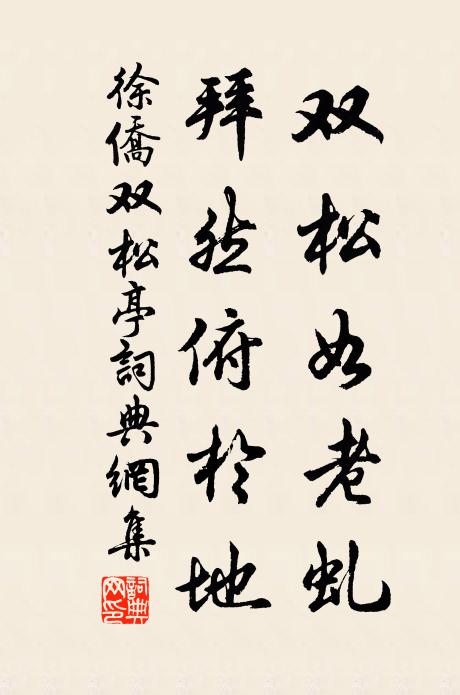 双松如老虬
拜然俯於地
徐僑双松亭詞典網集
詞典
网印